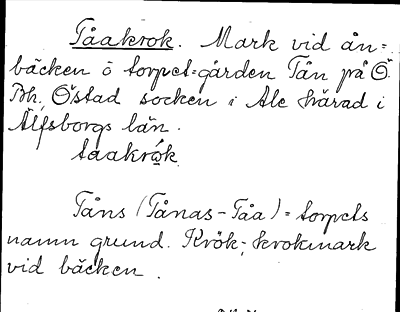 Tåakrok. Mark vid ån=
bäcken ö torpet=gården Tån på Ö.
Bh, Östad socken i Ale härad i
Älfsborgs län.
taakrok
Tåns (Tånas-Tåa) = torpets
namn grund. Krök-, krokmark
vid bäcken.